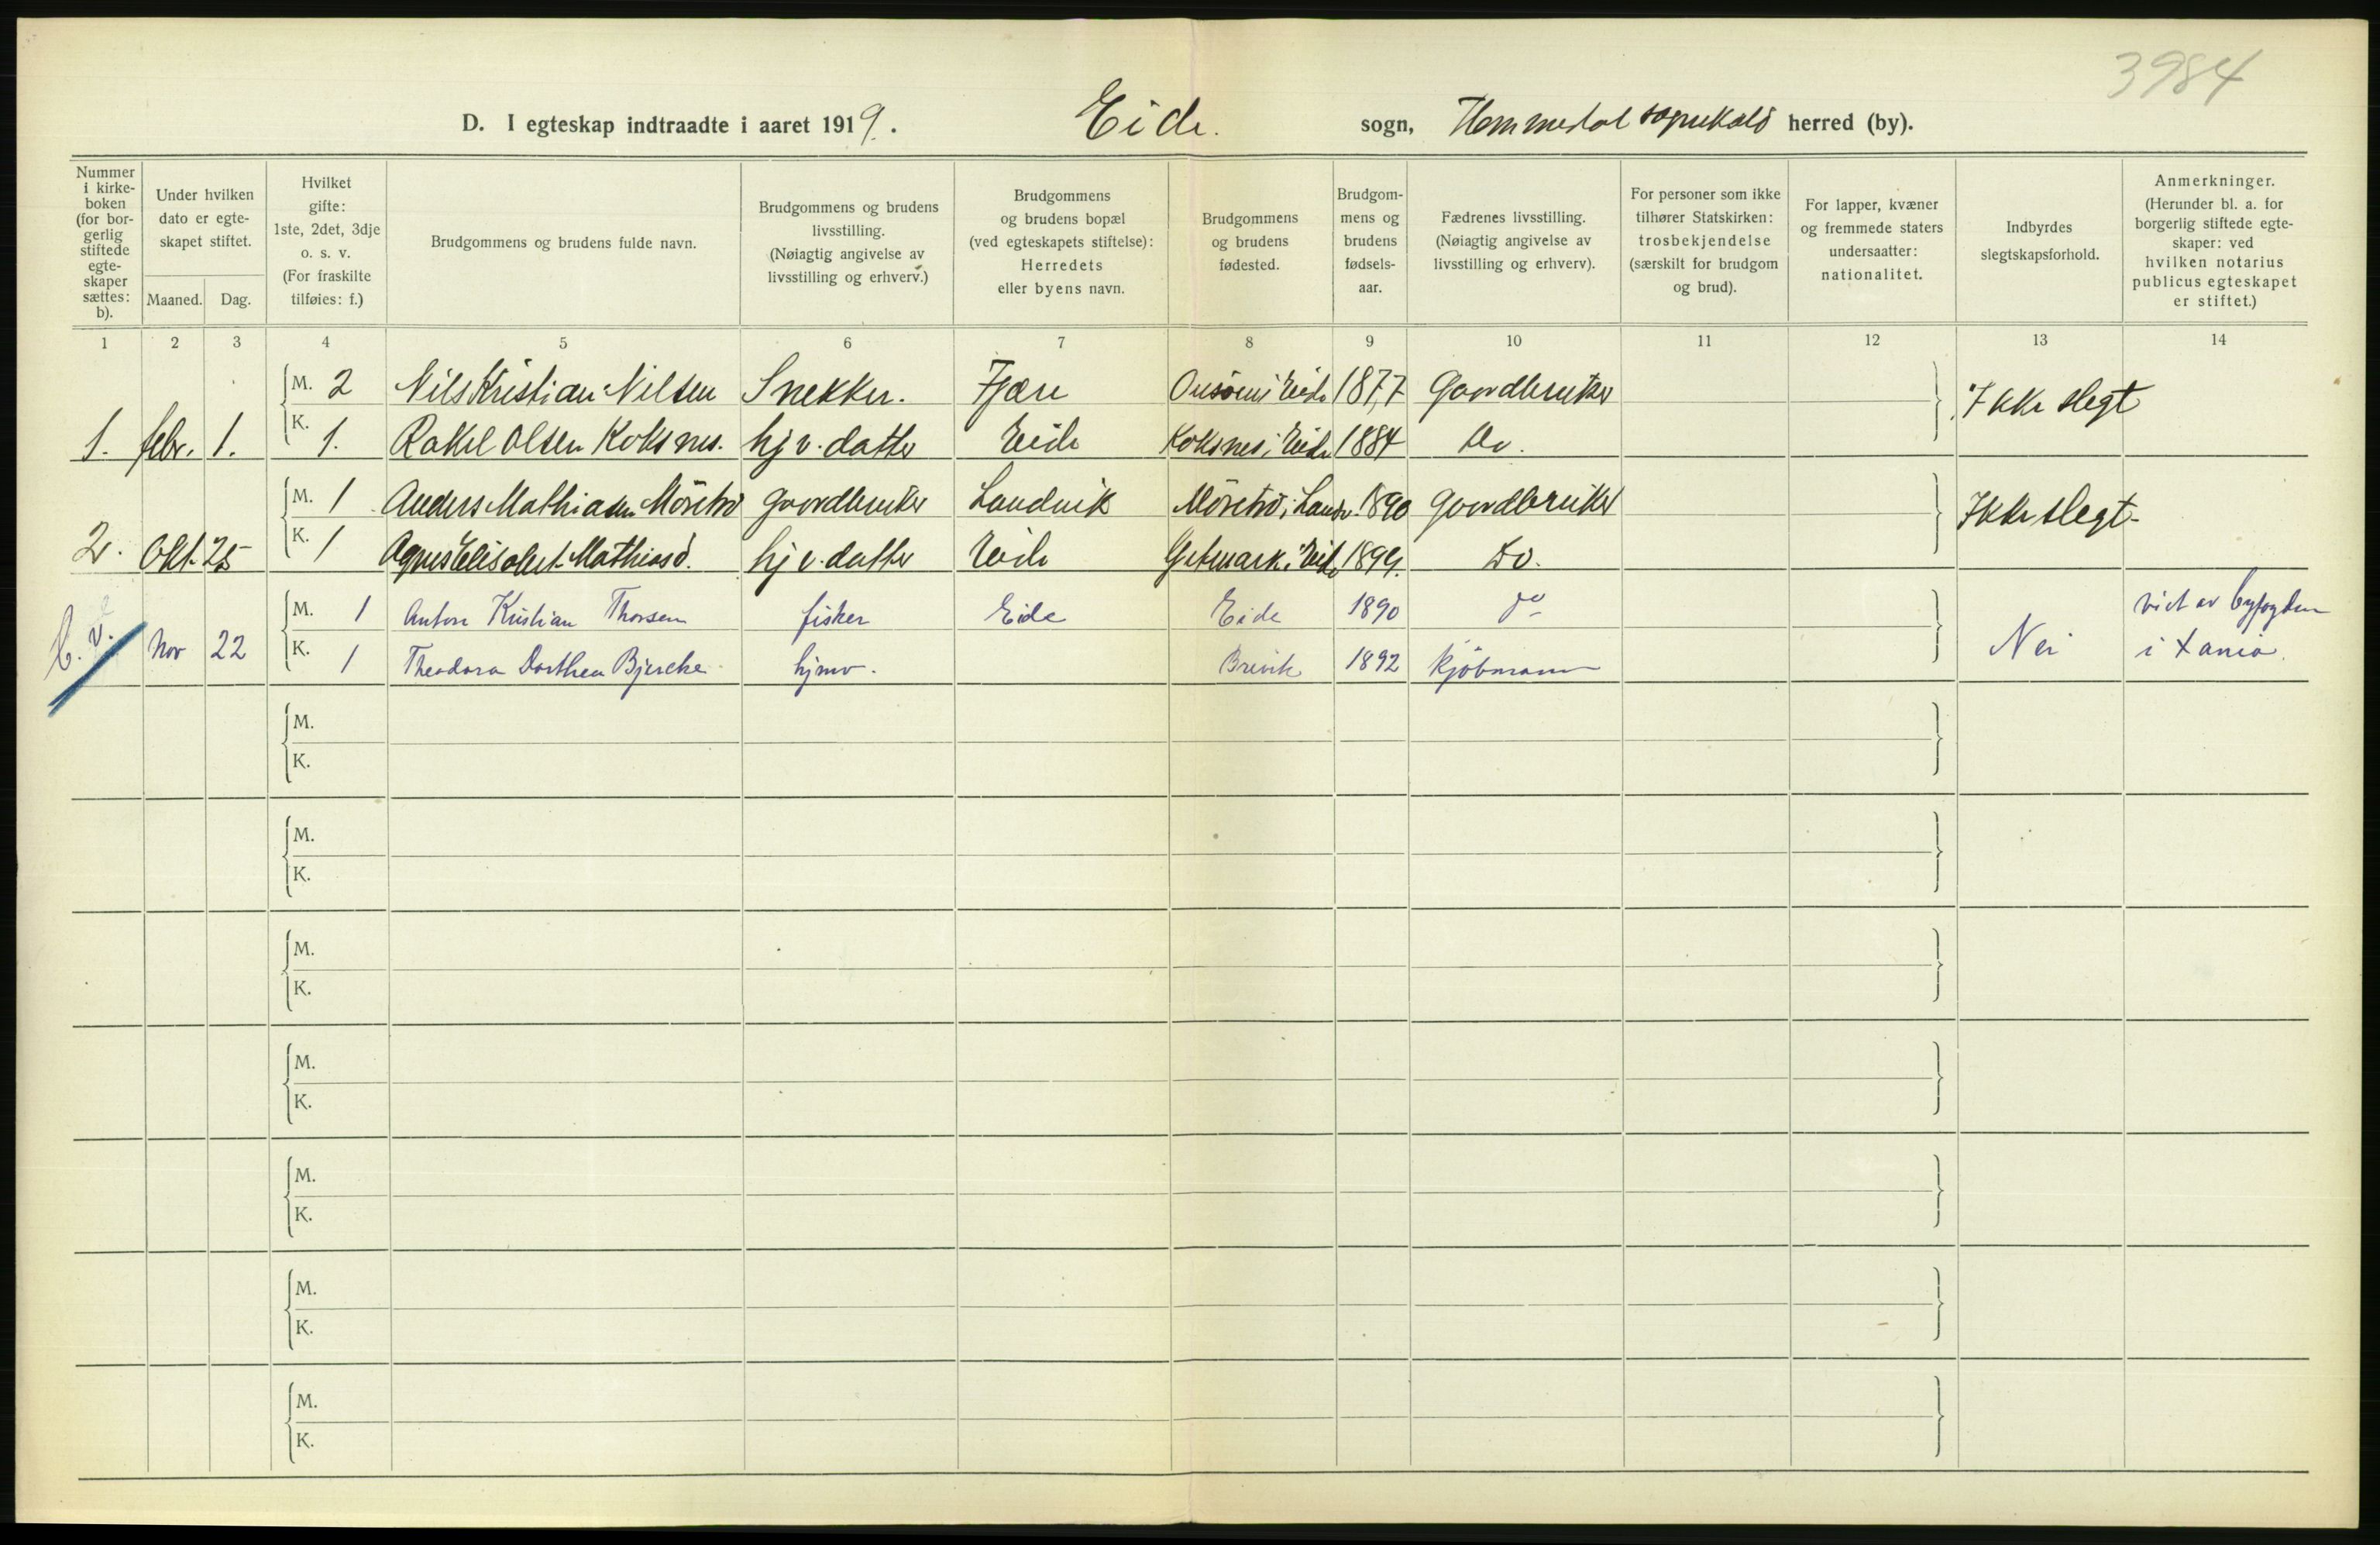 3984
D. I egteskap indtraadte i aaret 1919. Eide. sogn, Hommedal sognekald herred (by).
Nummer i kirke-boken (for bor-gerlig stiftede egte-skaper sættes: b).
Under hvilken dato er egte-skapet stiftet.
Maaned. Dag.
Hvilket gifte: 1ste, 2det, 3dje o. s. v. (For fraskilte tilføies: f.)
Brudgommens og brudens fulde navn.
Brudgommens og brudens livsstilling. (Nøiagtig angivelse av livsstilling og erhverv.)
Brudgommens og brudens bopæl (ved egteskapets stiftelse): Herredets eller byens navn.
Brudgommens og brudens fødested.
Brudgom-mens og brudens fødsels-aar.
Fædrenes livsstilling. (Nøiagtig angivelse av livsstilling og erhverv).
For personer som ikke tilhører Statskirken: trosbekjendelse (særskilt for brudgom og brud).
For lapper, kvæner og fremmede staters undersaatter: nationalitet.
Indbyrdes slegtskapsforhold.
Anmerkninger. (Herunder bl. a. for borgerlig stiftede egte-skaper: ved hvilken notarius publicus egteskapet er stiftet.)
1 2 3 4 5 6 7 8 9 10 11 12 13 14
M. 2 Nils Kristian Nilsen Snekker. Fjære i Eide 1877 Gaardbruker Ikke slegt
1. febr. 1. K. 1. Rakel Olsen Koksnes. hj v. datter Eide Koksnes i Eide 1884 Do.
M. 1 Anders Mathiasen Möretrö gaardbruker Landvik Möretrö i Landv. 1890 Gaardbruker Ikke slegt
2. Okt. 25 K. 1 Agnes Elisabet Mathiasd. hj v. datter Eide i Eide 1899. Do.
M. 1 Anton Kristian Thorsen fisker Eide Eide 1890 do viet av byfogden
b. v. Nov 22 K. 1 Theodora Dorthea Bjercke hjmv. Brevik 1892 Kjöbmann Nei i Xania.
M.
K.
M.
K.
M.
K.
M.
K.
M.
K.
M.
K.
M.
K.